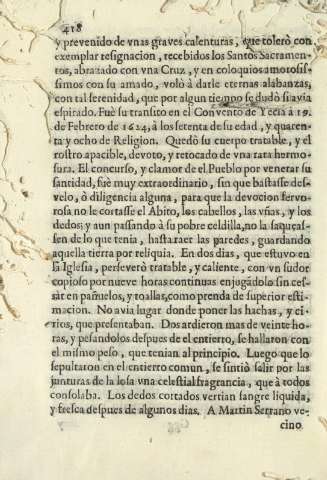 418
y prevenido de vnas graves calenturas, que tolerò con
exemplar resignacion, recebidos los Santos Sacramen-
tos, abrazado con vna Cruz, y en coloquios amorosis-
simos con su amado, volò à darle eternas alabanzas,
con tal serenidad, que por algun tiempo se dudò si avia
espirado. Fuè su transito en el Convento de Yecla à 19.
de Febrero de 1624, à los setenta de su edad, y quaren-
ta y ocho de Religion. Quedò su cuerpo tratable, y el
rostro apacible, devoto, y retocado de vna rata hermo-
sura. El concurso, y clamor de el Pueblo por venerar su
santidad, fuè muy extraordinario, sin que bastasse des-
velo, ò diligencia alguna, para que la devocion fervo-
rosa no le cortasse el Abito, los cabellos, las vñas, y los
dedos; y aun passando à su pobre celdilla, no la saqueas-
sen de lo que tenia, hasta raer las paredes, guardando
aquella tierra por reliquia. En dos dias, que estuvo en
la Iglesia, perseverò tratable, y caliente, con vn sudor
copioso por nueve horas continuas enjugandole sin ces-
sar en pañuelos, y toallas, como prenda de superior esti-
macion. No avia lugar donde poner las hachas, y ci-
rios, que presentaban. Dos ardieron mas de veinte ho-
ras, y pesandolos despues de el entierro, se hallaron con
el mismo peso, que tenian al principio. Luego que lo
sepultaron en el entierro comun, se sintiò salir por las
junturas de la losa vna celestial fragrancia, que à todos
consolaba. Los dedos cortados vertian sangre liquida,
y fresca despues de algunos dias. A Martin Serrano ve-
cino